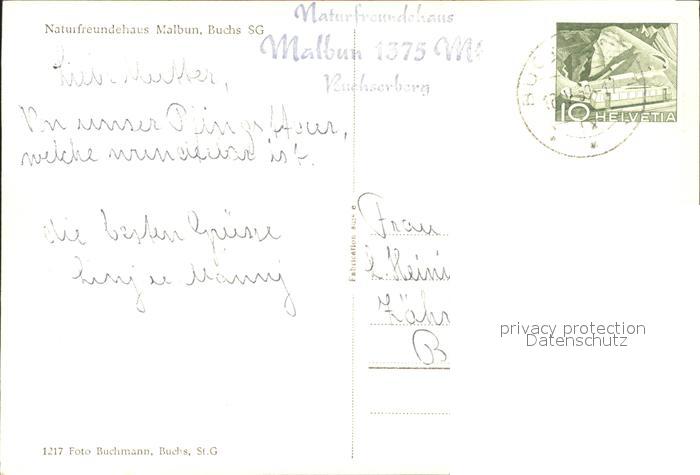 Naturfreundehaus Malbun, Buchs SG
Naturfreundehaus
Malbun 1375 M
Buchserberg
10 HELVETIA
Liebe Mutter,
Von unser Pfingsttour,
welche wunderbar ist.
die besten Grüsse
Frau
Fabrication suisse
privacy protection
Datenschutz
1217 Foto Buchmann, Buchs, St.G